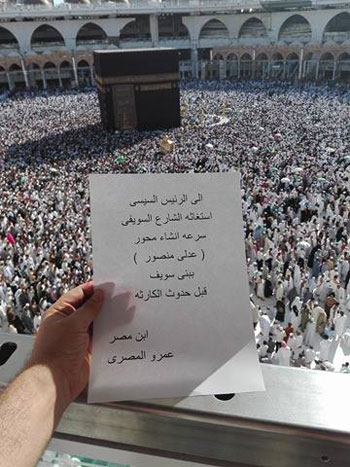 الى الرئيس السيسى
استغاثه الشارع السويفى
سرعه انشاء محور
( عدلى منصور )
ببنى سويف
قبل حدوث الكارثه
ابن مصر
عمرو المصرى